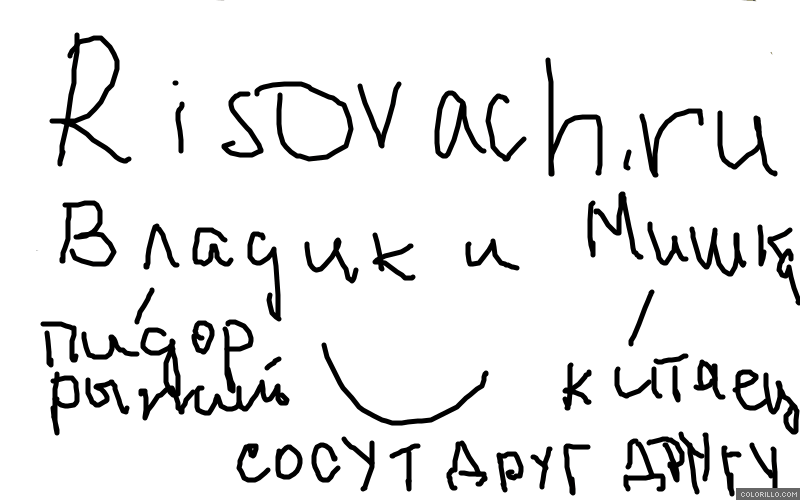 Risovach.ru
Владик и Мишка
пидор
рыжий китаец
сосут друг другу
COLORILLO.COM